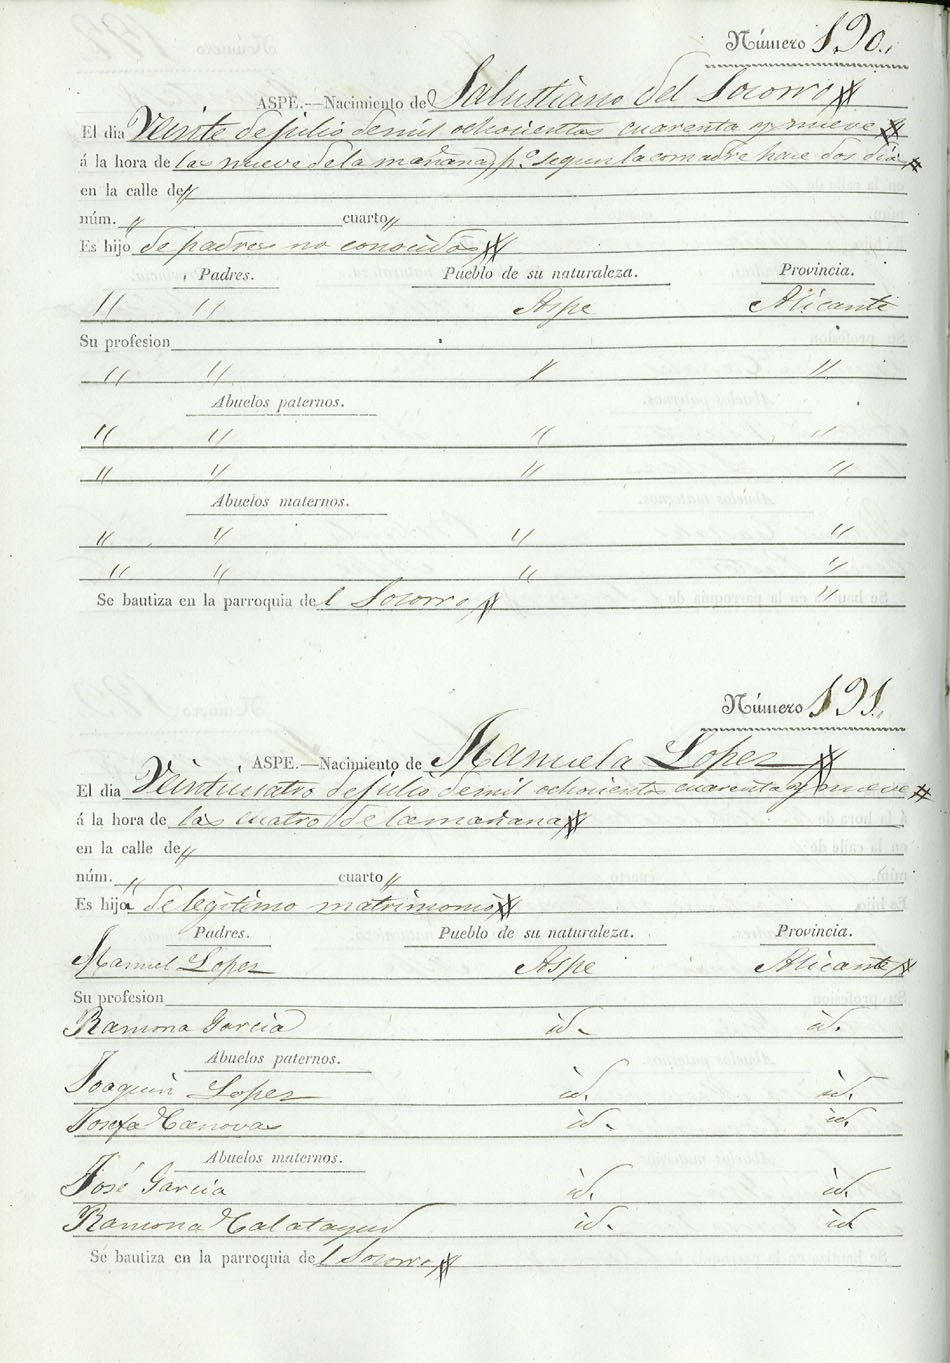 Número 190.
ASPE.—Nacimiento de Salustiano del Socorro
El dia Veinte de julio de mil ochocientos cuarenta y nueve
á la hora de las nueve de la mañana, pº segun la comadre hace dos dias
en la calle de "
núm. " cuarto "
Es hijo de padres no conocidos
Padres. Pueblo de su naturaleza. Provincia.
" " Aspe Alicante
Su profesion
" " " "
Abuelos paternos.
" " " "
" " " "
Abuelos maternos.
" " " "
" " " "
Se bautiza en la parroquia del Socorro "
Número 191.
ASPE.—Nacimiento de Manuela Lopez
El dia Veinticuatro de julio de mil ochocientos cuarenta y nueve
á la hora de las cuatro de la mañana
en la calle de "
núm. " cuarto "
Es hija de legítimo matrimonio
Padres. Pueblo de su naturaleza. Provincia.
Manuel Lopez Aspe Alicante
Su profesion
Ramona Garcia id. id.
Abuelos paternos.
Joaquin Lopez id. id.
Josefa Canovas id. id.
Abuelos maternos.
José Garcia id. id.
Ramona Calatayud id. id
Se bautiza en la parroquia del Socorro